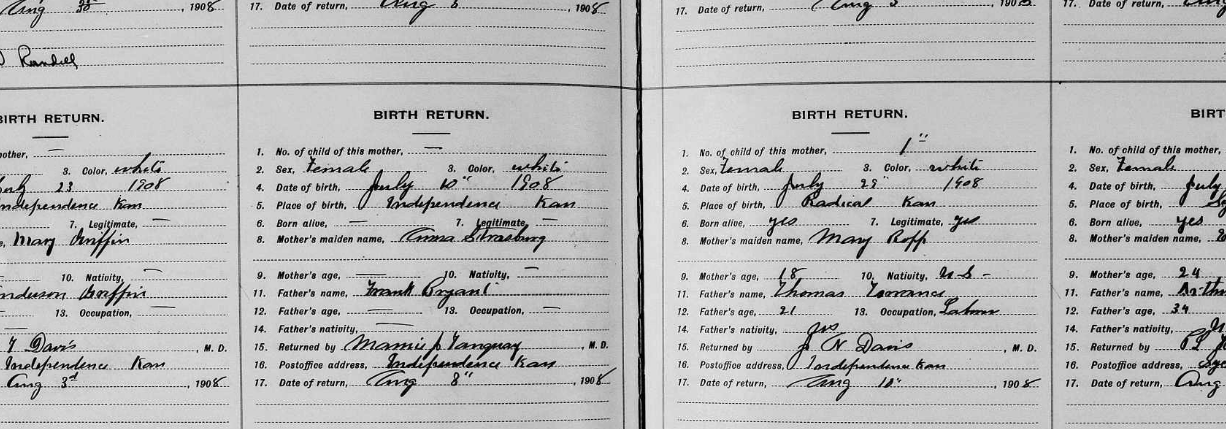 Aug 30 , 1908
Randell
BIRTH RETURN.
other, —
3. Color, white
July 23 1908
Independence Kan
7. Legitimate, —
Mary Griffin
10. Nativity, —
Anderson Griffin
13. Occupation, —
Davis M. D.
Independence Kan
Aug 3rd , 1908
17. Date of return, Aug 8 , 1908
BIRTH RETURN.
1. No. of child of this mother, —
2. Sex, Female 3. Color, white
4. Date of birth, July 10" 1908
5. Place of birth, Independence Kan
6. Born alive, — 7. Legitimate, —
8. Mother's maiden name, Emma Strasburg
9. Mother's age, — 10. Nativity, —
11. Father's name, Frank Bryant
12. Father's age, — 13. Occupation, —
14. Father's nativity, —
15. Returned by Mamie J. Tanquay , M. D.
16. Postoffice address, Independence Kan
17. Date of return, Aug 8" , 1908
17. Date of return, Aug 3 , 1908
BIRTH RETURN.
1. No. of child of this mother, 1"
2. Sex, Female 3. Color, white
4. Date of birth, July 29" 1908
5. Place of birth, Radical Kan
6. Born alive, yes 7. Legitimate, yes
8. Mother's maiden name, Mary Ropp
9. Mother's age, 18 10. Nativity, U.S -
11. Father's name, Thomas Torrance
12. Father's age, 21 13. Occupation, Labor
14. Father's nativity,
15. Returned by J N Davis M. D.
16. Postoffice address, Independence Kan
17. Date of return, Aug 10" , 1908
17. Date of return, Aug
BIRT
1. No. of child of this mother,
2. Sex, Female
4. Date of birth, July
5. Place of birth,
6. Born alive, yes
8. Mother's maiden name,
9. Mother's age, 24
11. Father's name, Arthu
12. Father's age, 34
14. Father's nativity,
15. Returned by
16. Postoffice address,
17. Date of return, Aug